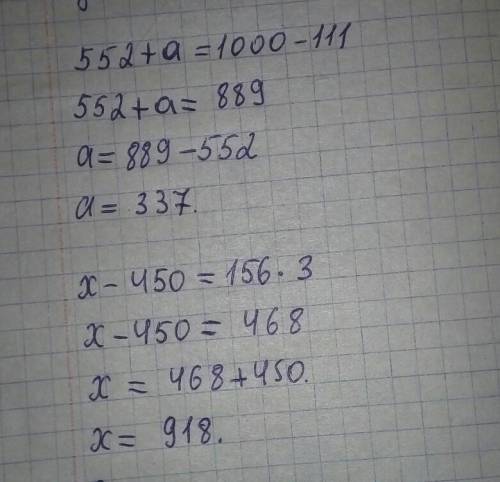 552+a=1000-111
552+a= 889
a= 889-552
a= 337.
x-450=156·3
x-450= 468
x = 468+450.
x= 918.